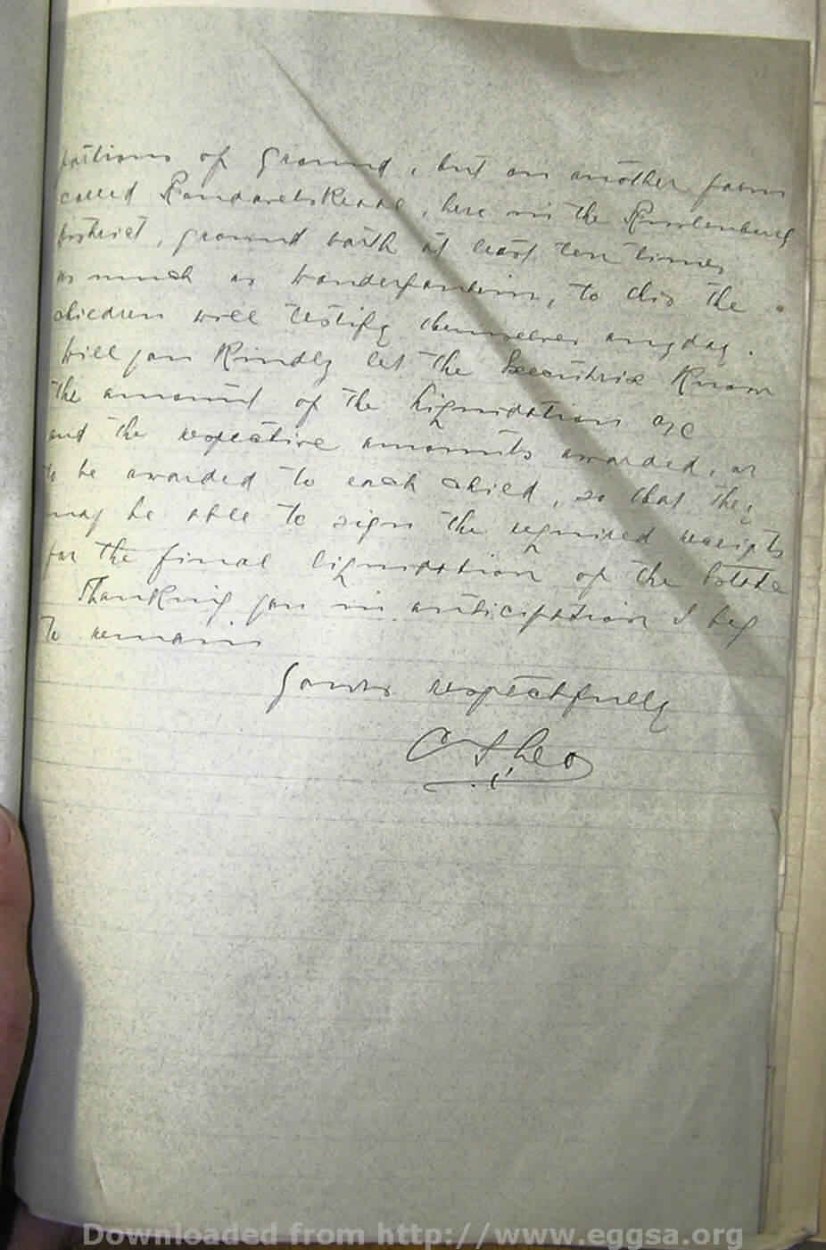 portions of Ground, but on another farm
called, here in the Rustenburg
District, ground worth at least ten times
as much as Wonderfontein, to this the
children will testify themselves anyday.
Will you Kindly let the Executrix Know
the amount of the Liquidation a/c
and the respective amounts awarded, or
to be awarded to each child, so that they
may be able to sign the required receipts
for the final liquidation of the Estate
Thanking you in anticipation I beg
to remain
Yours respectfully
Downloaded from http://www.eggsa.org